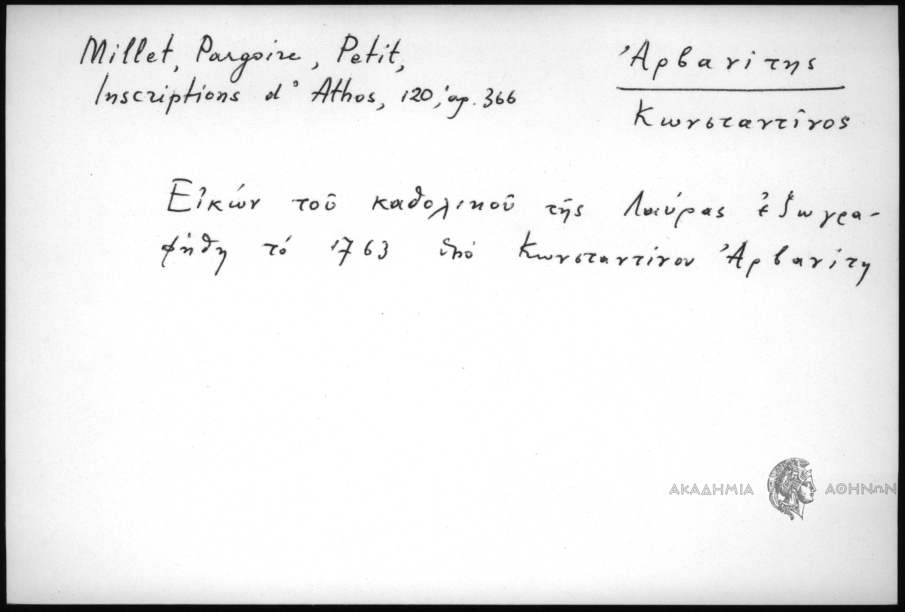 Millet, Pargoire, Petit,
Inscriptions d' Athos, 120, ἀρ. 366
Ἀρβανίτης
Κωνσταντῖνος
Εἰκών τοῦ καθολικοῦ τῆς Λαύρας ἐζωγρα-
φήθη τό 1763 ὑπό Κωνσταντίνου Ἀρβανίτη
ΑΚΑΔΗΜΙΑ ΑΘΗΝΩΝ